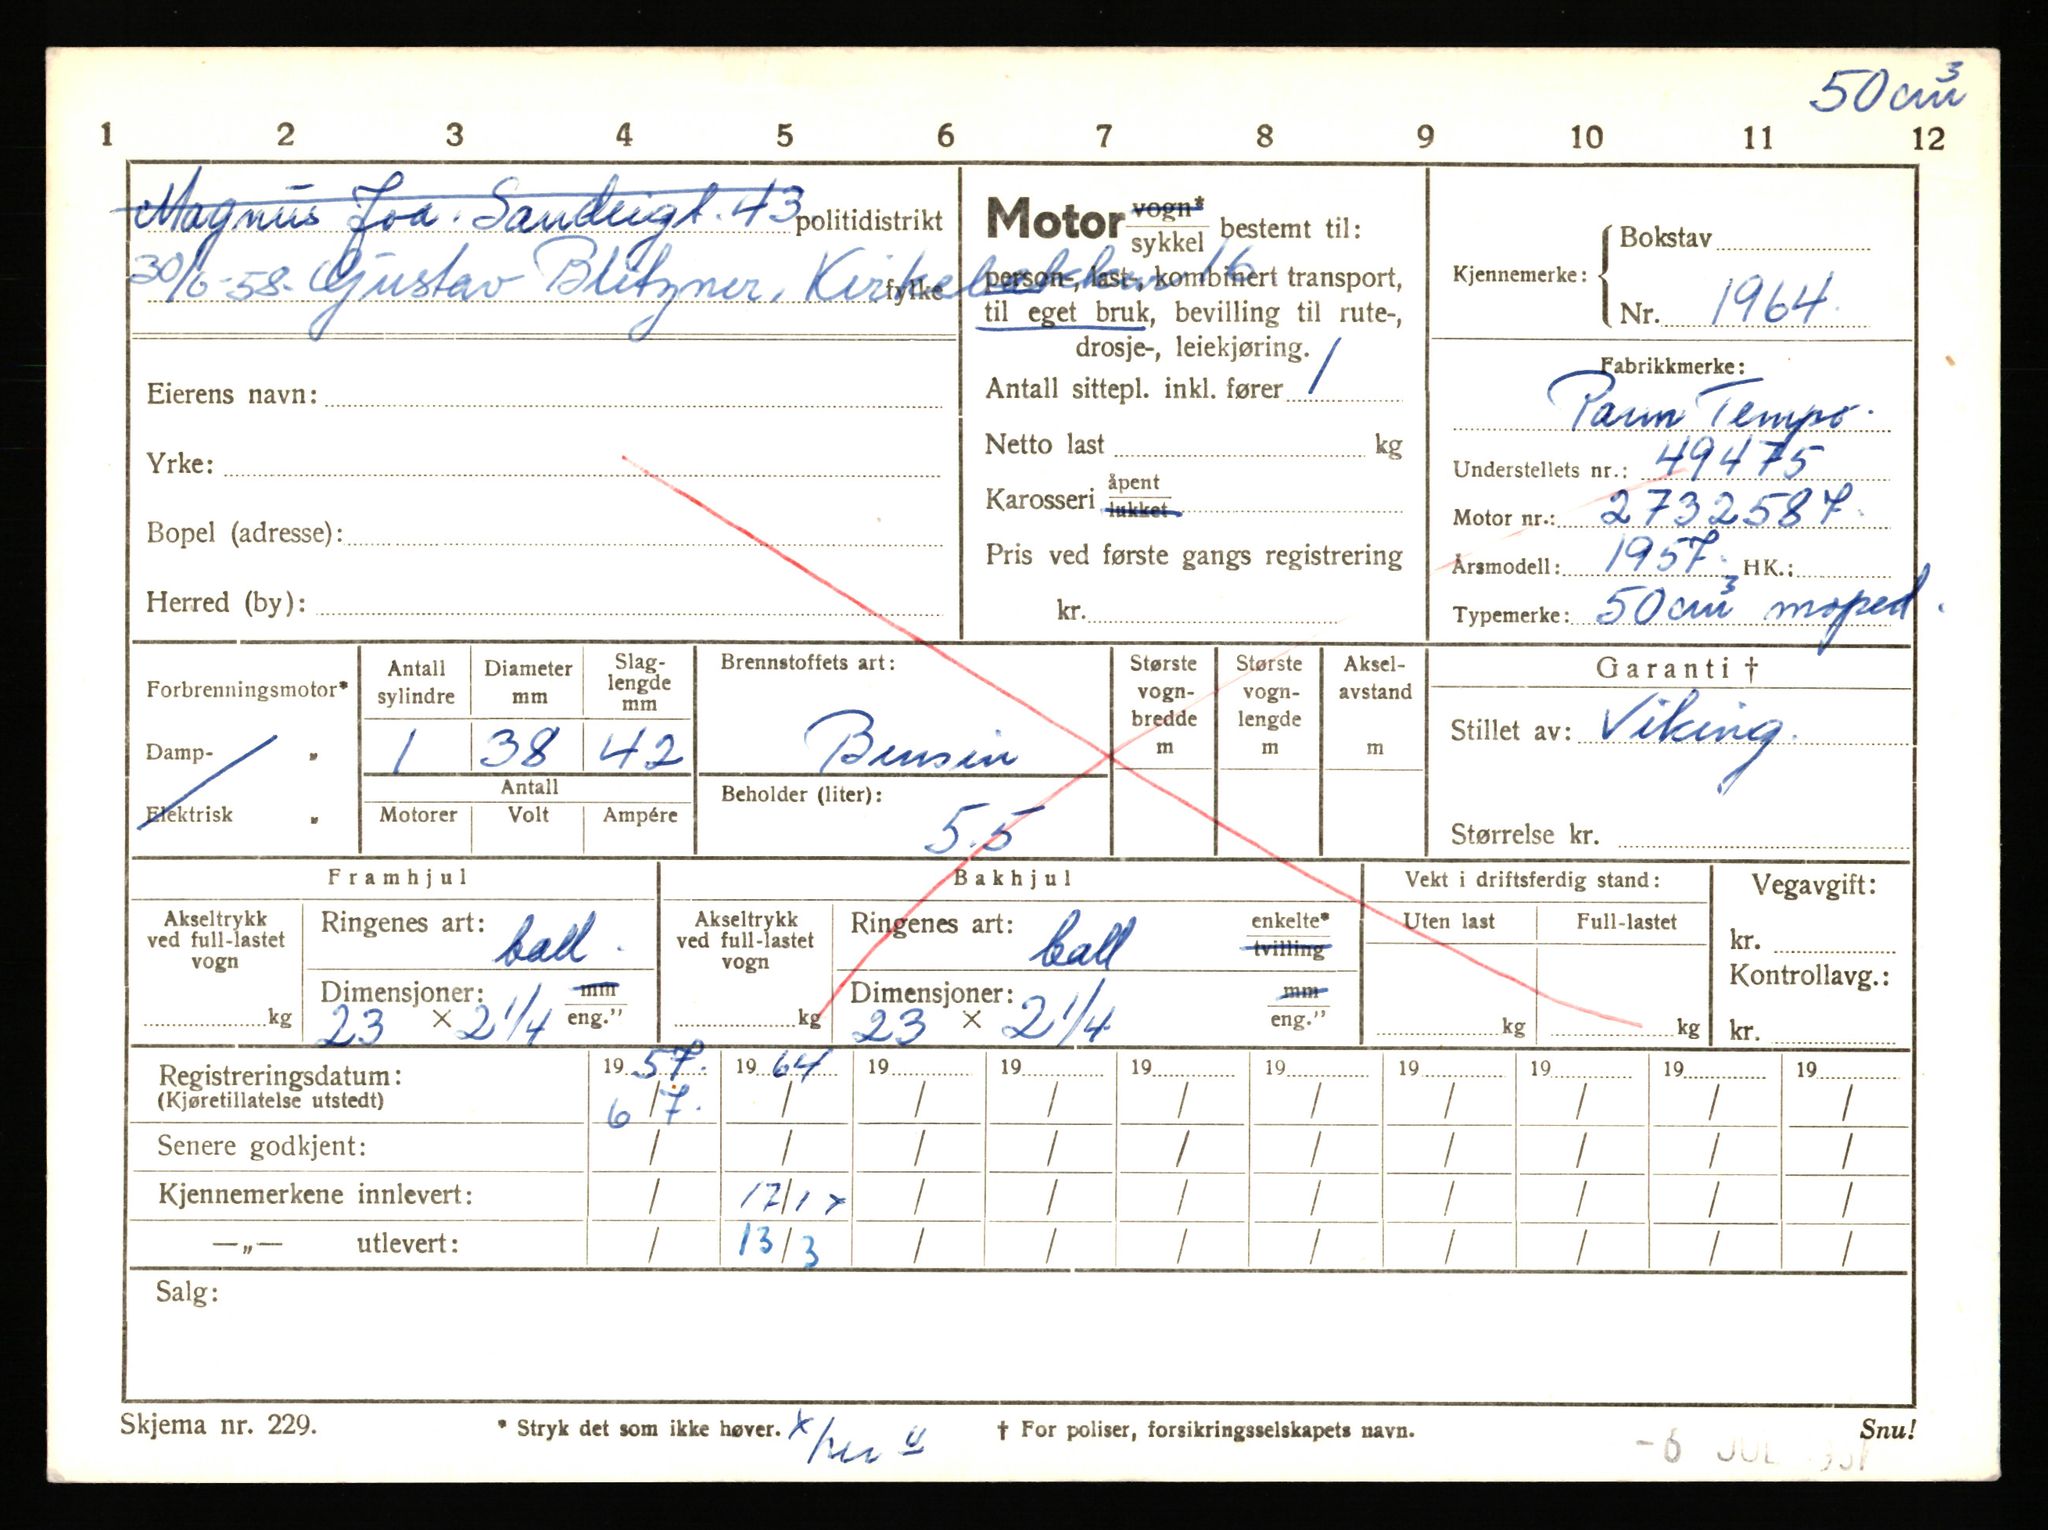 50 cm3
1 2 3 4 5 6 7 8 9 10 11 12
Magnus Joa. Sandvigt. 43 politidistrikt
30/6-58. Gustav Blitzner, 16
fylke
Eierens navn:
Yrke:
Bopel (adresse):
Herred (by):
Motor vogn* sykkel bestemt til:
person-, last-, kombinert transport,
til eget bruk, bevilling til rute-,
drosje-, leiekjøring.
Antall sittepl. inkl. fører 1
Netto last kg
Karosseri åpent lukket
Pris ved første gangs registrering
kr.
Kjennemerke: Bokstav
Nr. 1964.
Fabrikkmerke:
Tempo.
Understellets nr.: 49475
Motor nr.: 2732587.
Årsmodell: 1957. HK.:
Typemerke: 50 cm3 moped.
Forbrenningsmotor*
Damp- „
Elektrisk „
Antall sylindre
Diameter mm
Slag-lengde mm
1 38 42
Antall
Motorer Volt Ampére
Brennstoffets art:
Bensin
Beholder (liter):
5.5
Største vogn-bredde m
Største vogn-lengde m
Aksel-avstand m
Garanti †
Stillet av: Viking.
Størrelse kr.
Framhjul
Akseltrykk ved full-lastet vogn
kg
Ringenes art: ball.
Dimensjoner: mm
23 × 2 1/4 eng."
Bakhjul
Akseltrykk ved full-lastet vogn
kg
Ringenes art: ball enkelte* tvilling
Dimensjoner: mm
23 × 2 1/4 eng."
Vekt i driftsferdig stand:
Uten last Full-lastet
kg kg
Vegavgift:
kr.
Kontrollavg.:
kr.
Registreringsdatum: 1957. 1964 19 19 19 19 19 19 19 19
(Kjøretillatelse utstedt) 6/7. / / / / / / / / /
Senere godkjent: / / / / / / / / / /
Kjennemerkene innlevert: / 17/1 x / / / / / / / /
—„— utlevert: / 13/3 / / / / / / / /
Salg:
Skjema nr. 229. * Stryk det som ikke høver. x † For poliser, forsikringsselskapets navn. Snu!
-6 JUL